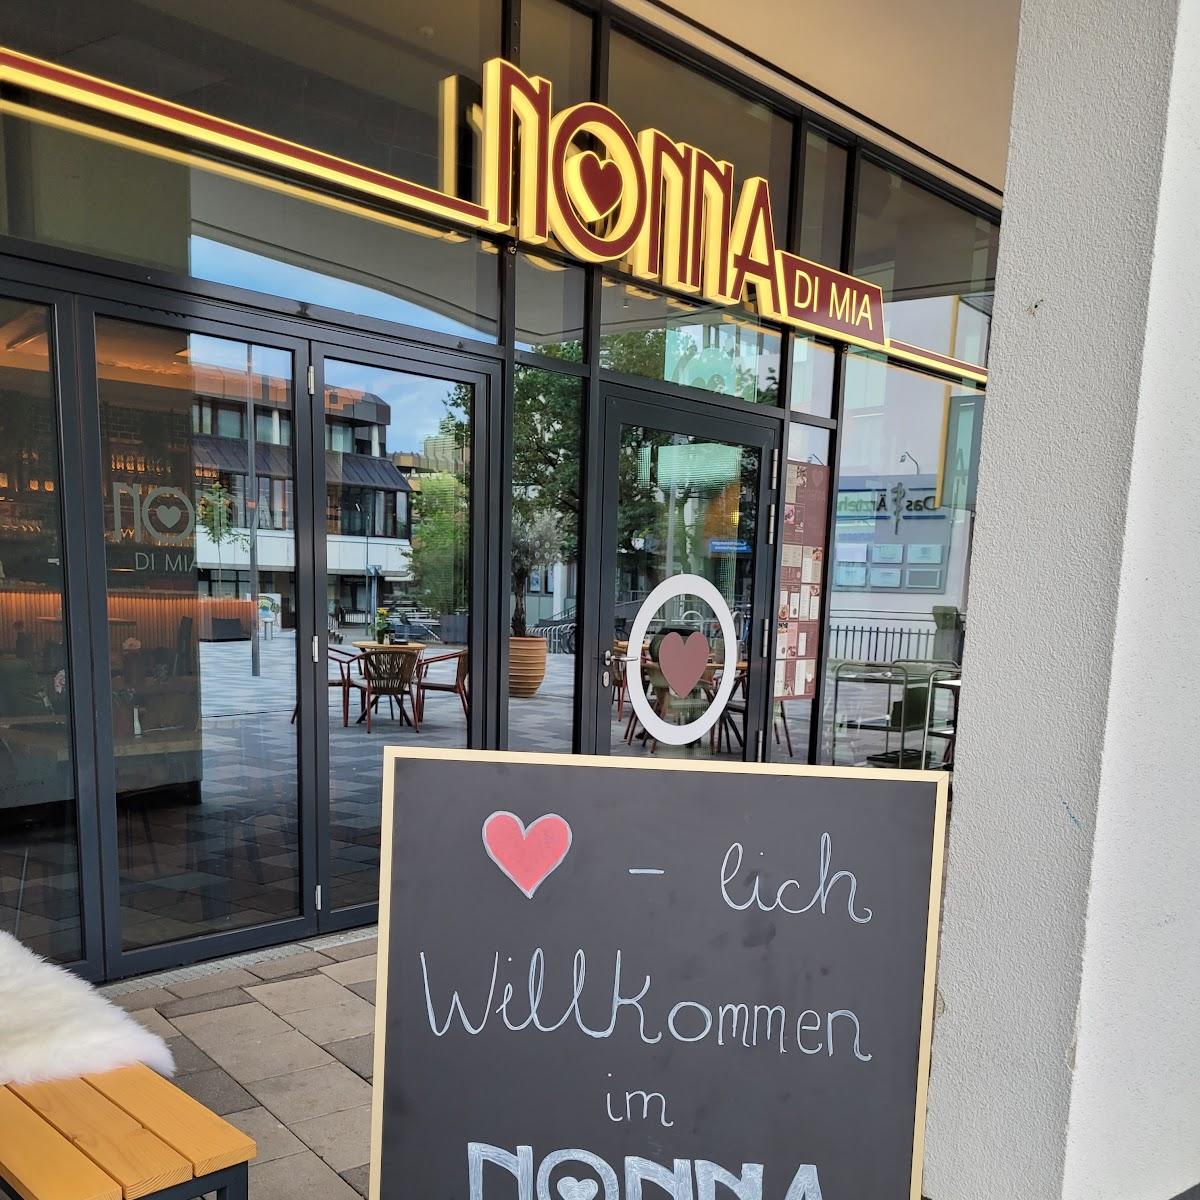 NONNA
DI MIA
NONNA
DI MIA
Das Ärzteh
♥ - lich
Willkommen
im
NONNA